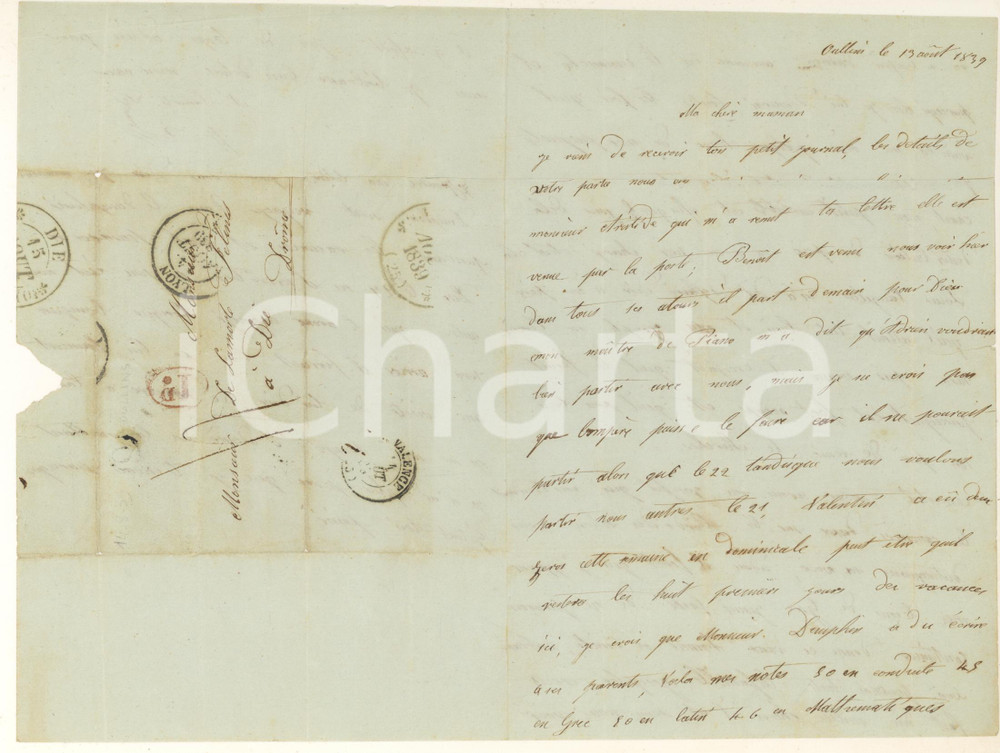 Oullins le 13 août 1839
Ma chère maman
je viens de recevoir ton petit journal, les détails de
votre
monsieur Aristide qui m'a remit ta lettre elle est
venue par la poste; Benoit est venu nous voir hier
dans tous ses atours il part demain pour
mon maître de Piano m'a dit qu'Adrien voudrait
bien partir avec nous, mais je ne crois pas
que compère puisse le faire car il ne pourrait
partir alors que le 22 tandisque nous voulons
partir nous autres le 21, Valentin a eû deux
zeros cette semaine en dominicale peut être quil
restera les huit premiers jours des vacances
ici, je crois que Monsieur Dauphin a du écrire
à ses parents, Voila mes notes 50 en conduite 45
en Grec 50 en latin 46 en Mathematiques
Monsieur
De Lamorte Felines
à Die
Drôme
DIE
15
AOUT
LYON
AOUT
1839
VALENCE
1D
iCharta